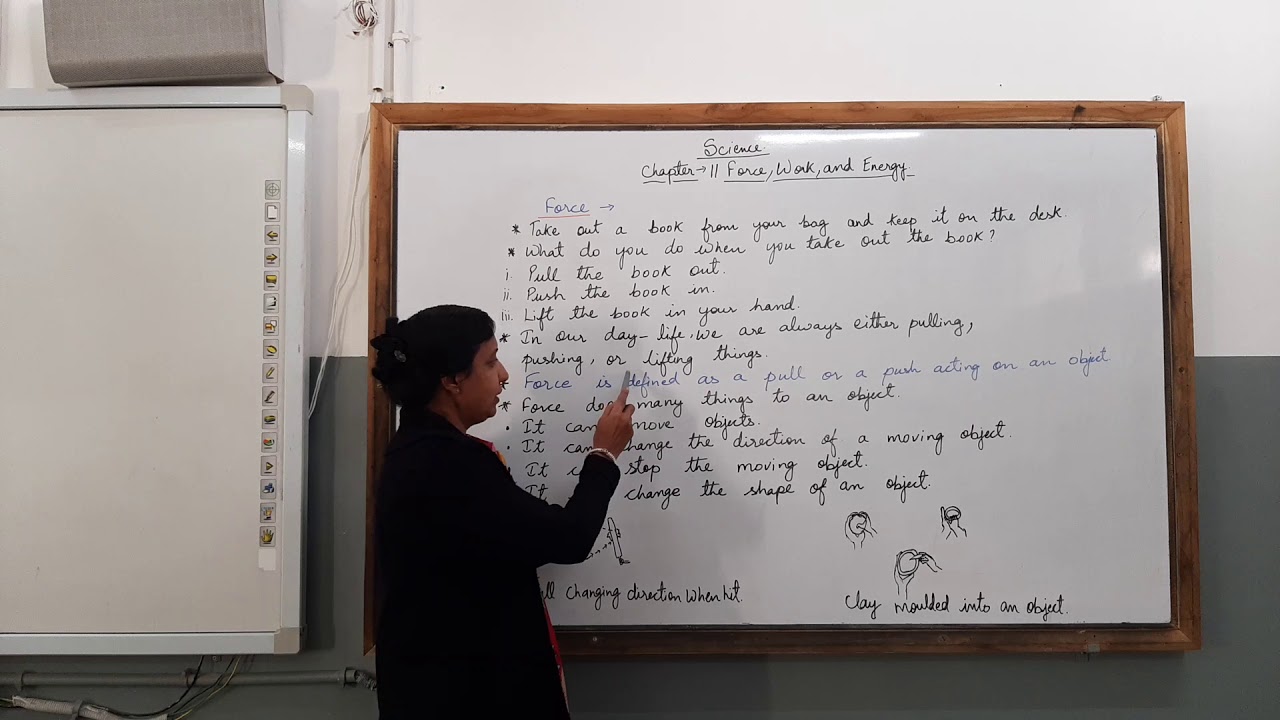 Science.
Chapter → 11 Force, Work, and Energy.
Force →
* Take out a book from your bag and keep it on the desk.
* What do you do when you take out the book?
i. Pull the book out.
ii. Push the book in.
iii. Lift the book in your hand.
* In our day-life, we are always either pulling,
pushing, or lifting things.
Force is defined as a pull or a push acting on an object
* Force many things to an object.
• It can move objects.
• It can change the direction of a moving object.
• It stop the moving object.
It change the shape of an object.
changing direction when hit.
Clay moulded into an object.